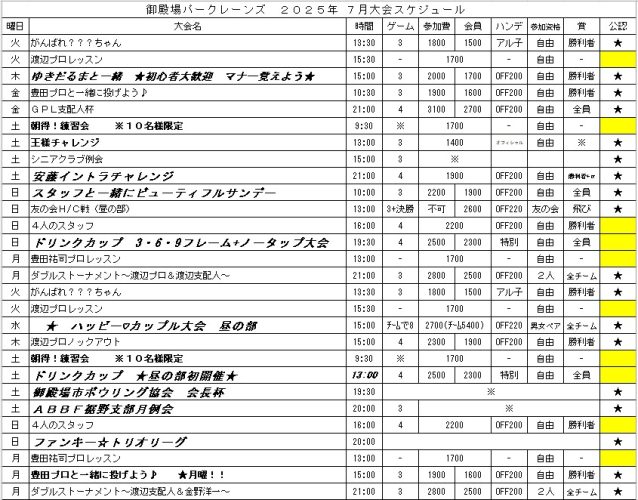 御殿場パークレーンズ　２０２５年　７月大会スケジュール
曜日 大会名 時間 ゲーム 参加費 会員 ハンデ 参加資格 賞 公認
火 がんばれ？？？ちゃん 13:30 3 1800 1500 アル子 自由 勝利者 ★
火 渡辺プロレッスン 15:30 - 1700 - 自由 -
木 ゆきだるまと一緒　★初心者大歓迎　マナー覚えよう★ 15:00 3 2000 1700 OFF200 自由 勝利者 ★
金 豊田プロと一緒に投げよう♪ 10:30 3 1900 1600 OFF200 自由 勝利者 ★
金 ＧＰＬ支配人杯 21:00 4 3100 2700 OFF200 自由 全員 ★
土 朝得！練習会　　※１０名様限定 9:30 ※ 1700 - 自由 -
土 王様チャレンジ 13:00 3 1400 オフィシャル 自由 ※ ★
土 シニアクラブ例会 15:00 3 ※ ★
土 安藤イントラチャレンジ 21:00 4 1900 OFF200 自由 ★
日 スタッフと一緒にビューティフルサンデー 10:00 3 2200 1900 OFF200 自由 全員 ★
日 友の会Ｈ/Ｃ戦（昼の部） 13:00 3+決勝 不可 2600 OFF220 友の会 飛び ★
日 ４人のスタッフ 16:00 4 2200 OFF200 自由 勝利者
日 ドリンクカップ　３・６・９フレーム+ノータップ大会 19:30 4 2500 2300 特別 自由 全員
月 豊田祐司プロレッスン 13:00 - 1700 - 自由 -
月 ダブルストーナメント～渡辺プロ＆渡辺支配人～ 21:00 3 2800 2500 OFF200 ２人 全チーム ★
火 がんばれ？？？ちゃん 13:30 3 1800 1500 アル子 自由 勝利者 ★
火 渡辺プロレッスン 15:30 - 1700 - 自由 -
水 ★　ハッピー♡カップル大会　昼の部 15:00 ﾁｰﾑで8 2700(ﾁｰﾑ5400) OFF220 男女ペア 全チーム ★
木 渡辺プロノックアウト 15:00 4 2300 1900 OFF200 自由 勝利者 ★
土 朝得！練習会　　※１０名様限定 9:30 ※ 1700 - 自由 -
土 ドリンクカップ　★昼の部初開催★ 13:00 4 2500 2300 特別 自由 全員
土 御殿場市ボウリング協会　会長杯 19:30 ※ ★
土 ＡＢＢＦ裾野支部月例会 20:00 3 ※ ★
日 ４人のスタッフ 16:00 4 2200 OFF200 自由 勝利者
日 ファンキー☆トリオリーグ 20:00 ★
月 豊田祐司プロレッスン 13:00 - 1700 - 自由 -
月 豊田プロと一緒に投げよう♪　　★月曜！！ 15:00 3 1900 1600 OFF200 自由 勝利者 ★
月 ダブルストーナメント～渡辺支配人＆金野洋一～ 21:00 3 2800 2500 OFF200 ２人 全チーム ★